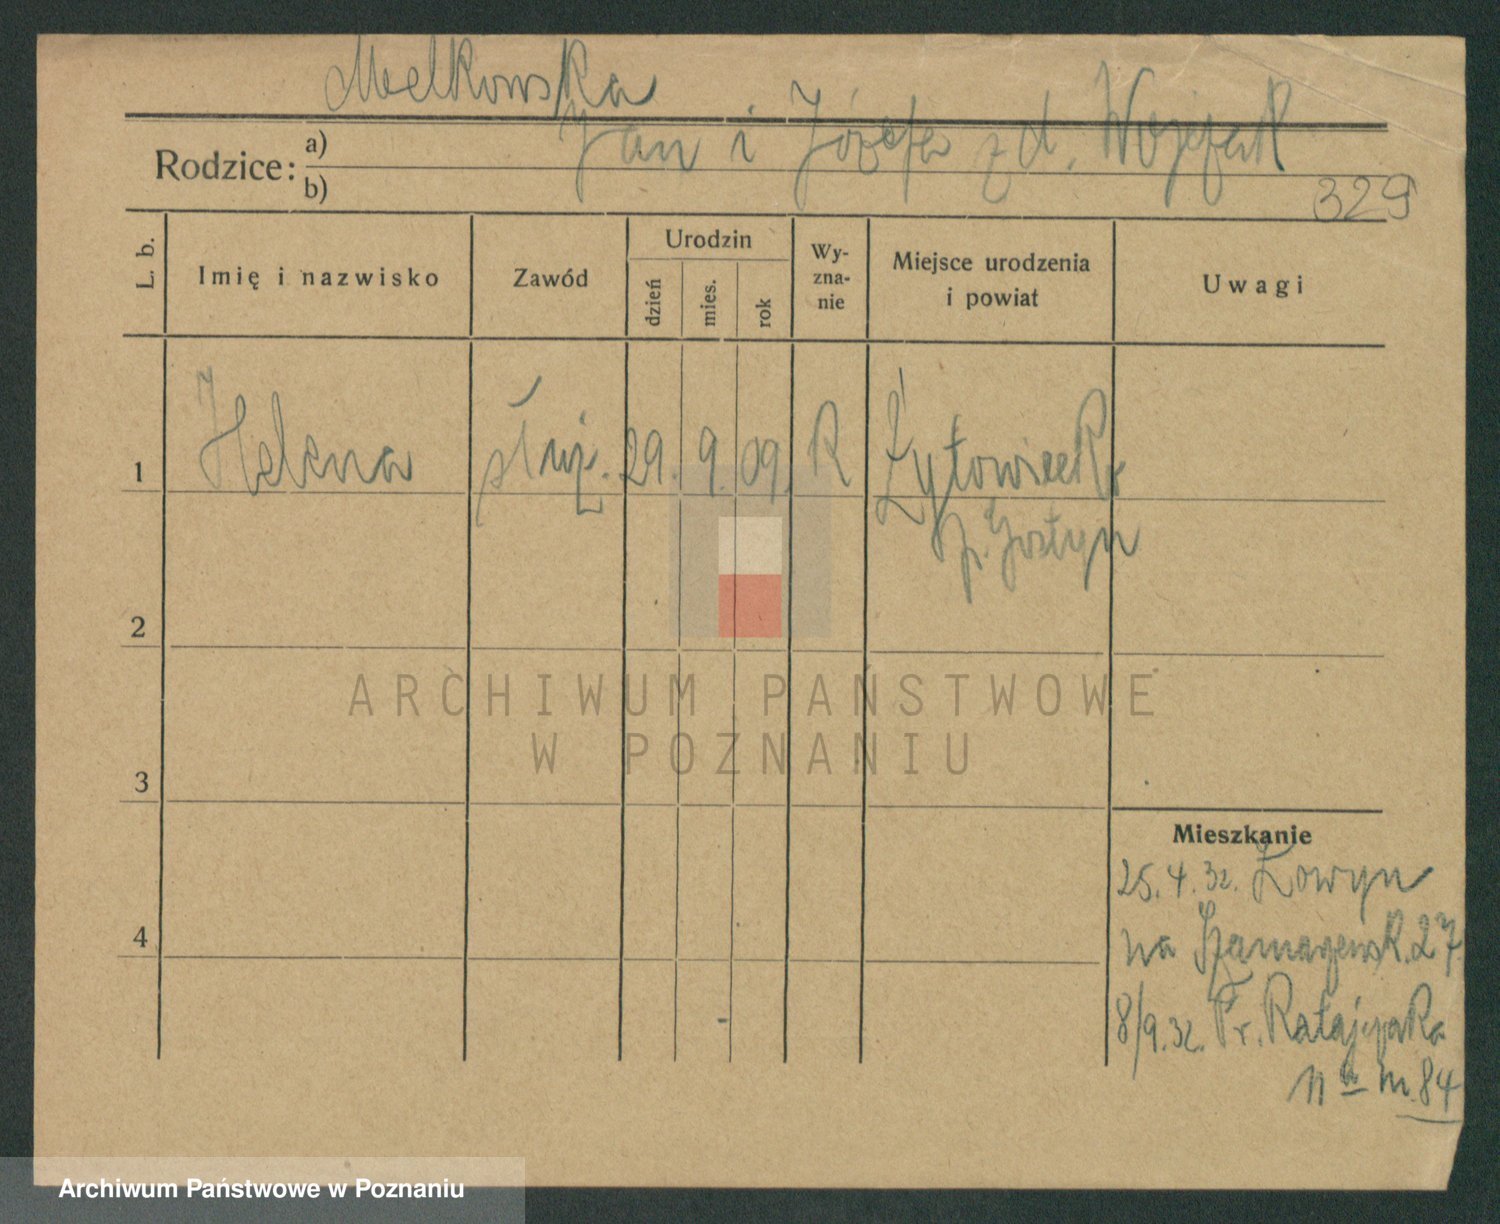 Melkowska
Rodzice: a) Jan i Józefa z d. Wozejak
b)
329
L. b.
Imię i nazwisko
Zawód
Urodzin
dzień
mies.
rok
Wy-
zna-
nie
Miejsce urodzenia
i powiat
Uwagi
1 Helena służ. 29. 9. 09. R Żytowiecko
p. Gostyn
2
3
4
Mieszkanie
25. 4. 32. Łowyn
na Szamarzewsk. 27.
8/9. 32. Fr. Ratajczaka
11 a m. 84
ARCHIWUM PAŃSTWOWE
W POZNANIU
Archiwum Państwowe w Poznaniu